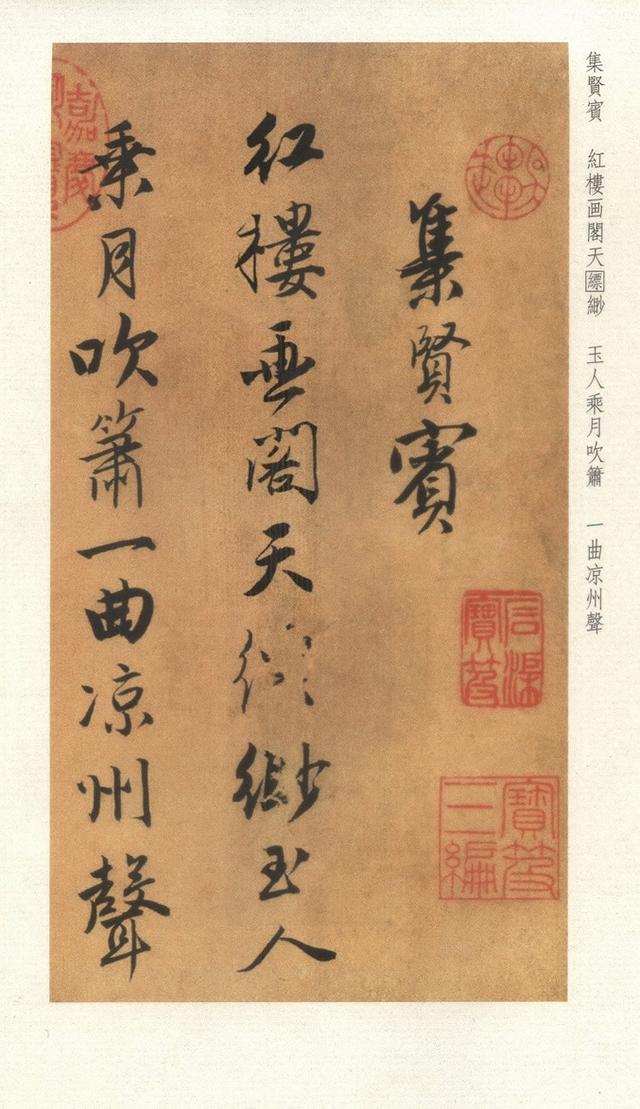 集賢賓　紅樓画閣天縹緲　玉人乘月吹簫　一曲凉州聲
集賢賓
紅樓畫閣天縹緲玉人
乘月吹簫一曲凉州聲
寶笈
三編
嘉慶